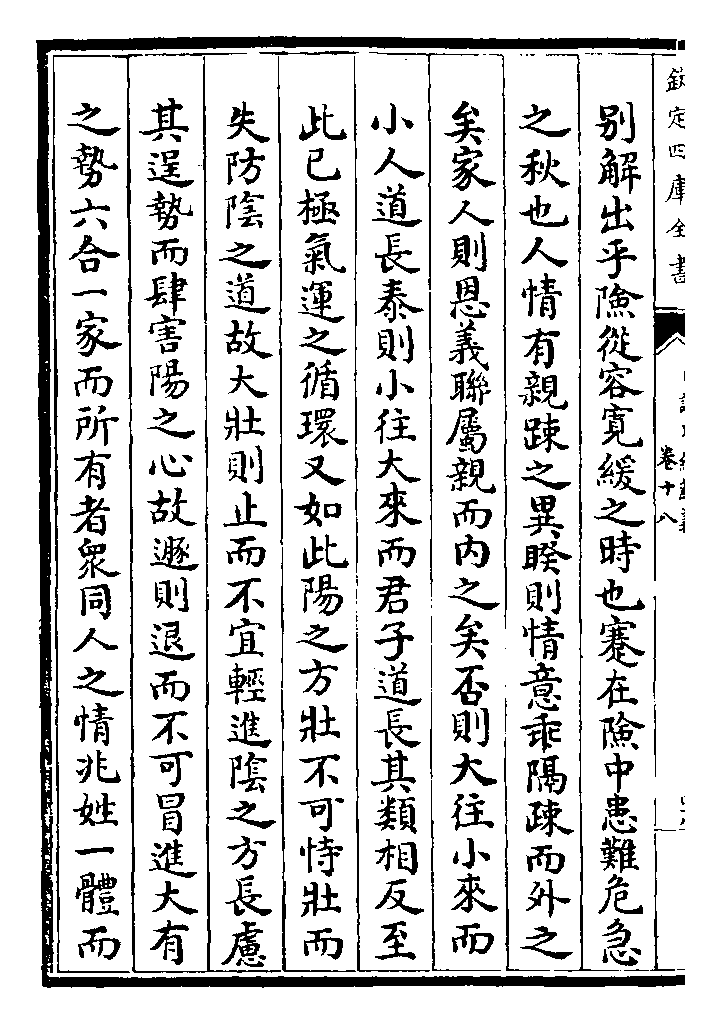 欽定四庫全書
卷十八
別解出乎險從容寬緩之時也蹇在險中患難危急
之秋也人情有親踈之異睽則情意乖隔踈而外之
矣家人則恩義聯屬親而内之矣否則大往小來而
小人道長泰則小往大來而君子道長其類相反至
此已極氣運之循環又如此陽之方壯不可恃壯而
失防陰之道故大壯則止而不宜輕進陰之方長慮
其逞勢而肆害陽之心故遯則退而不可冒進大有
之勢六合一家而所有者衆同人之情兆姓一體而